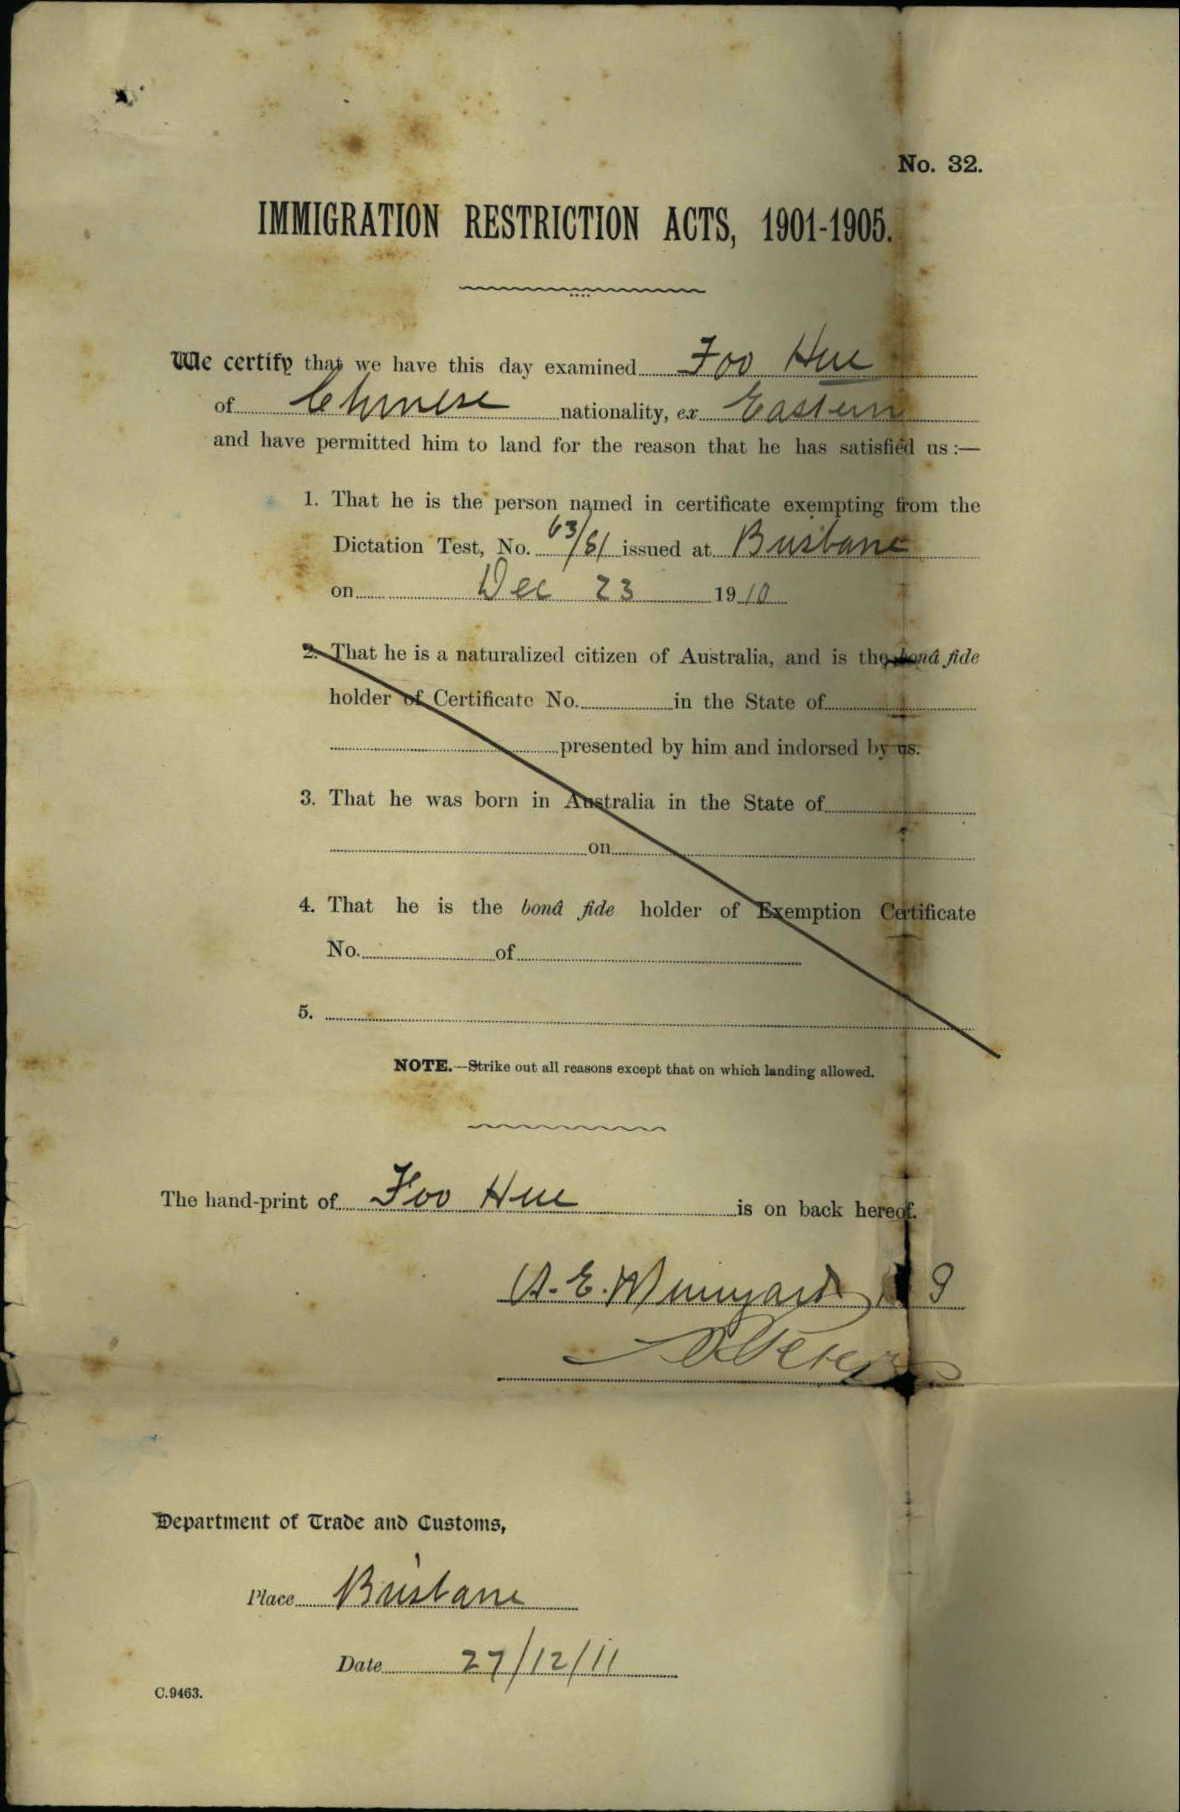 No. 32.
IMMIGRATION RESTRICTION ACTS, 1901-1905.
We certify that we have this day examined Foo Hue
of Chinese nationality, ex Eastern
and have permitted him to land for the reason that he has satisfied us :—
1. That he is the person named in certificate exempting from the
Dictation Test, No. 63/81 issued at Brisbane
on Dec 23 1910
2. That he is a naturalized citizen of Australia, and is the bonâ fide
holder of Certificate No. in the State of
presented by him and indorsed by us.
3. That he was born in Australia in the State of
on
4. That he is the bonâ fide holder of Exemption Certificate
No. of
5.
NOTE.—Strike out all reasons except that on which landing allowed.
The hand-print of Foo Hue is on back hereof.
Department of Trade and Customs,
Place Brisbane
Date 27/12/11
C.9463.